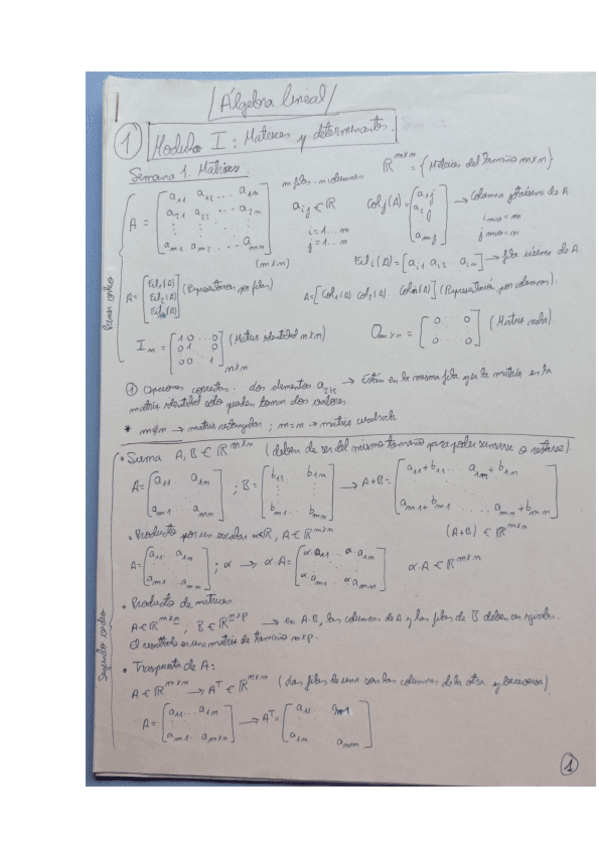 /Álgebra lineal/
① Modulo I: Matrices y determinantes.
Semana 1. Matrices
m filas - n columnas
ℝ^{m×n} = {Matrices del tamaño m×n}
A = [a11 a12 ... a1n
a21 a22 ... a2n
⋮ ⋮ ⋱ ⋮
am1 am2 ... amn] (m×n)
aij ∈ ℝ
i = 1...m
Colj(A) = → Columna
Fili(A) = [ai1 ai2 ain] → fila
A = [Fil1(A)
Fil2(A)
Film(A)] (Representación por filas)
A = [Col1(A) Col2(A) ... Coln(A)] (Representación por columnas).
(Matriz identidad n×n)
0m×n = [0 0
0 0] (Matriz nula).
① Opciones correctas. dos elementos a2k → Están en la misma fila y en la matriz en la
matriz identidad solo pueden tomar dos valores.
* m≠n → matriz rectangular ; m=n → matriz cuadrada
• Suma A, B ∈ ℝ^{m×n} (deben de ser del mismo tamaño para poder sumarse o restarse).
A = [a11 ... a1n
am1 ... amn] ; B = [b11 ... b1n
bm1 ... bmn] → A+B = [a11+b11 ... a1n+b1n
am1+bm1 ... amn+bmn]
(A+B) ∈ ℝ^{m×n}
• Producto por un escalar α∈ℝ, A ∈ ℝ^{m×n}
A = [a11 ... a1n
am1 ... amn] ; α → α·A = [α·a11 ... α·a1n
α·am1 ... α·amn] α·A ∈ ℝ^{m×n}
• Producto de matrices.
A ∈ ℝ^{m×n} ; B ∈ ℝ^{n×p} → en A·B, las columnas de A y las filas de B deben ser iguales.
El resultado es una matriz de tamaño m×p.
• Traspuesta de A:
A ∈ ℝ^{m×n} → A^T ∈ ℝ^{n×m} (Las filas de una son las columnas de la otra y viceversa)
A = [a11 ... a1n
am1 ... amn] → A^T = [a11 am1
a1n ... amn]
①